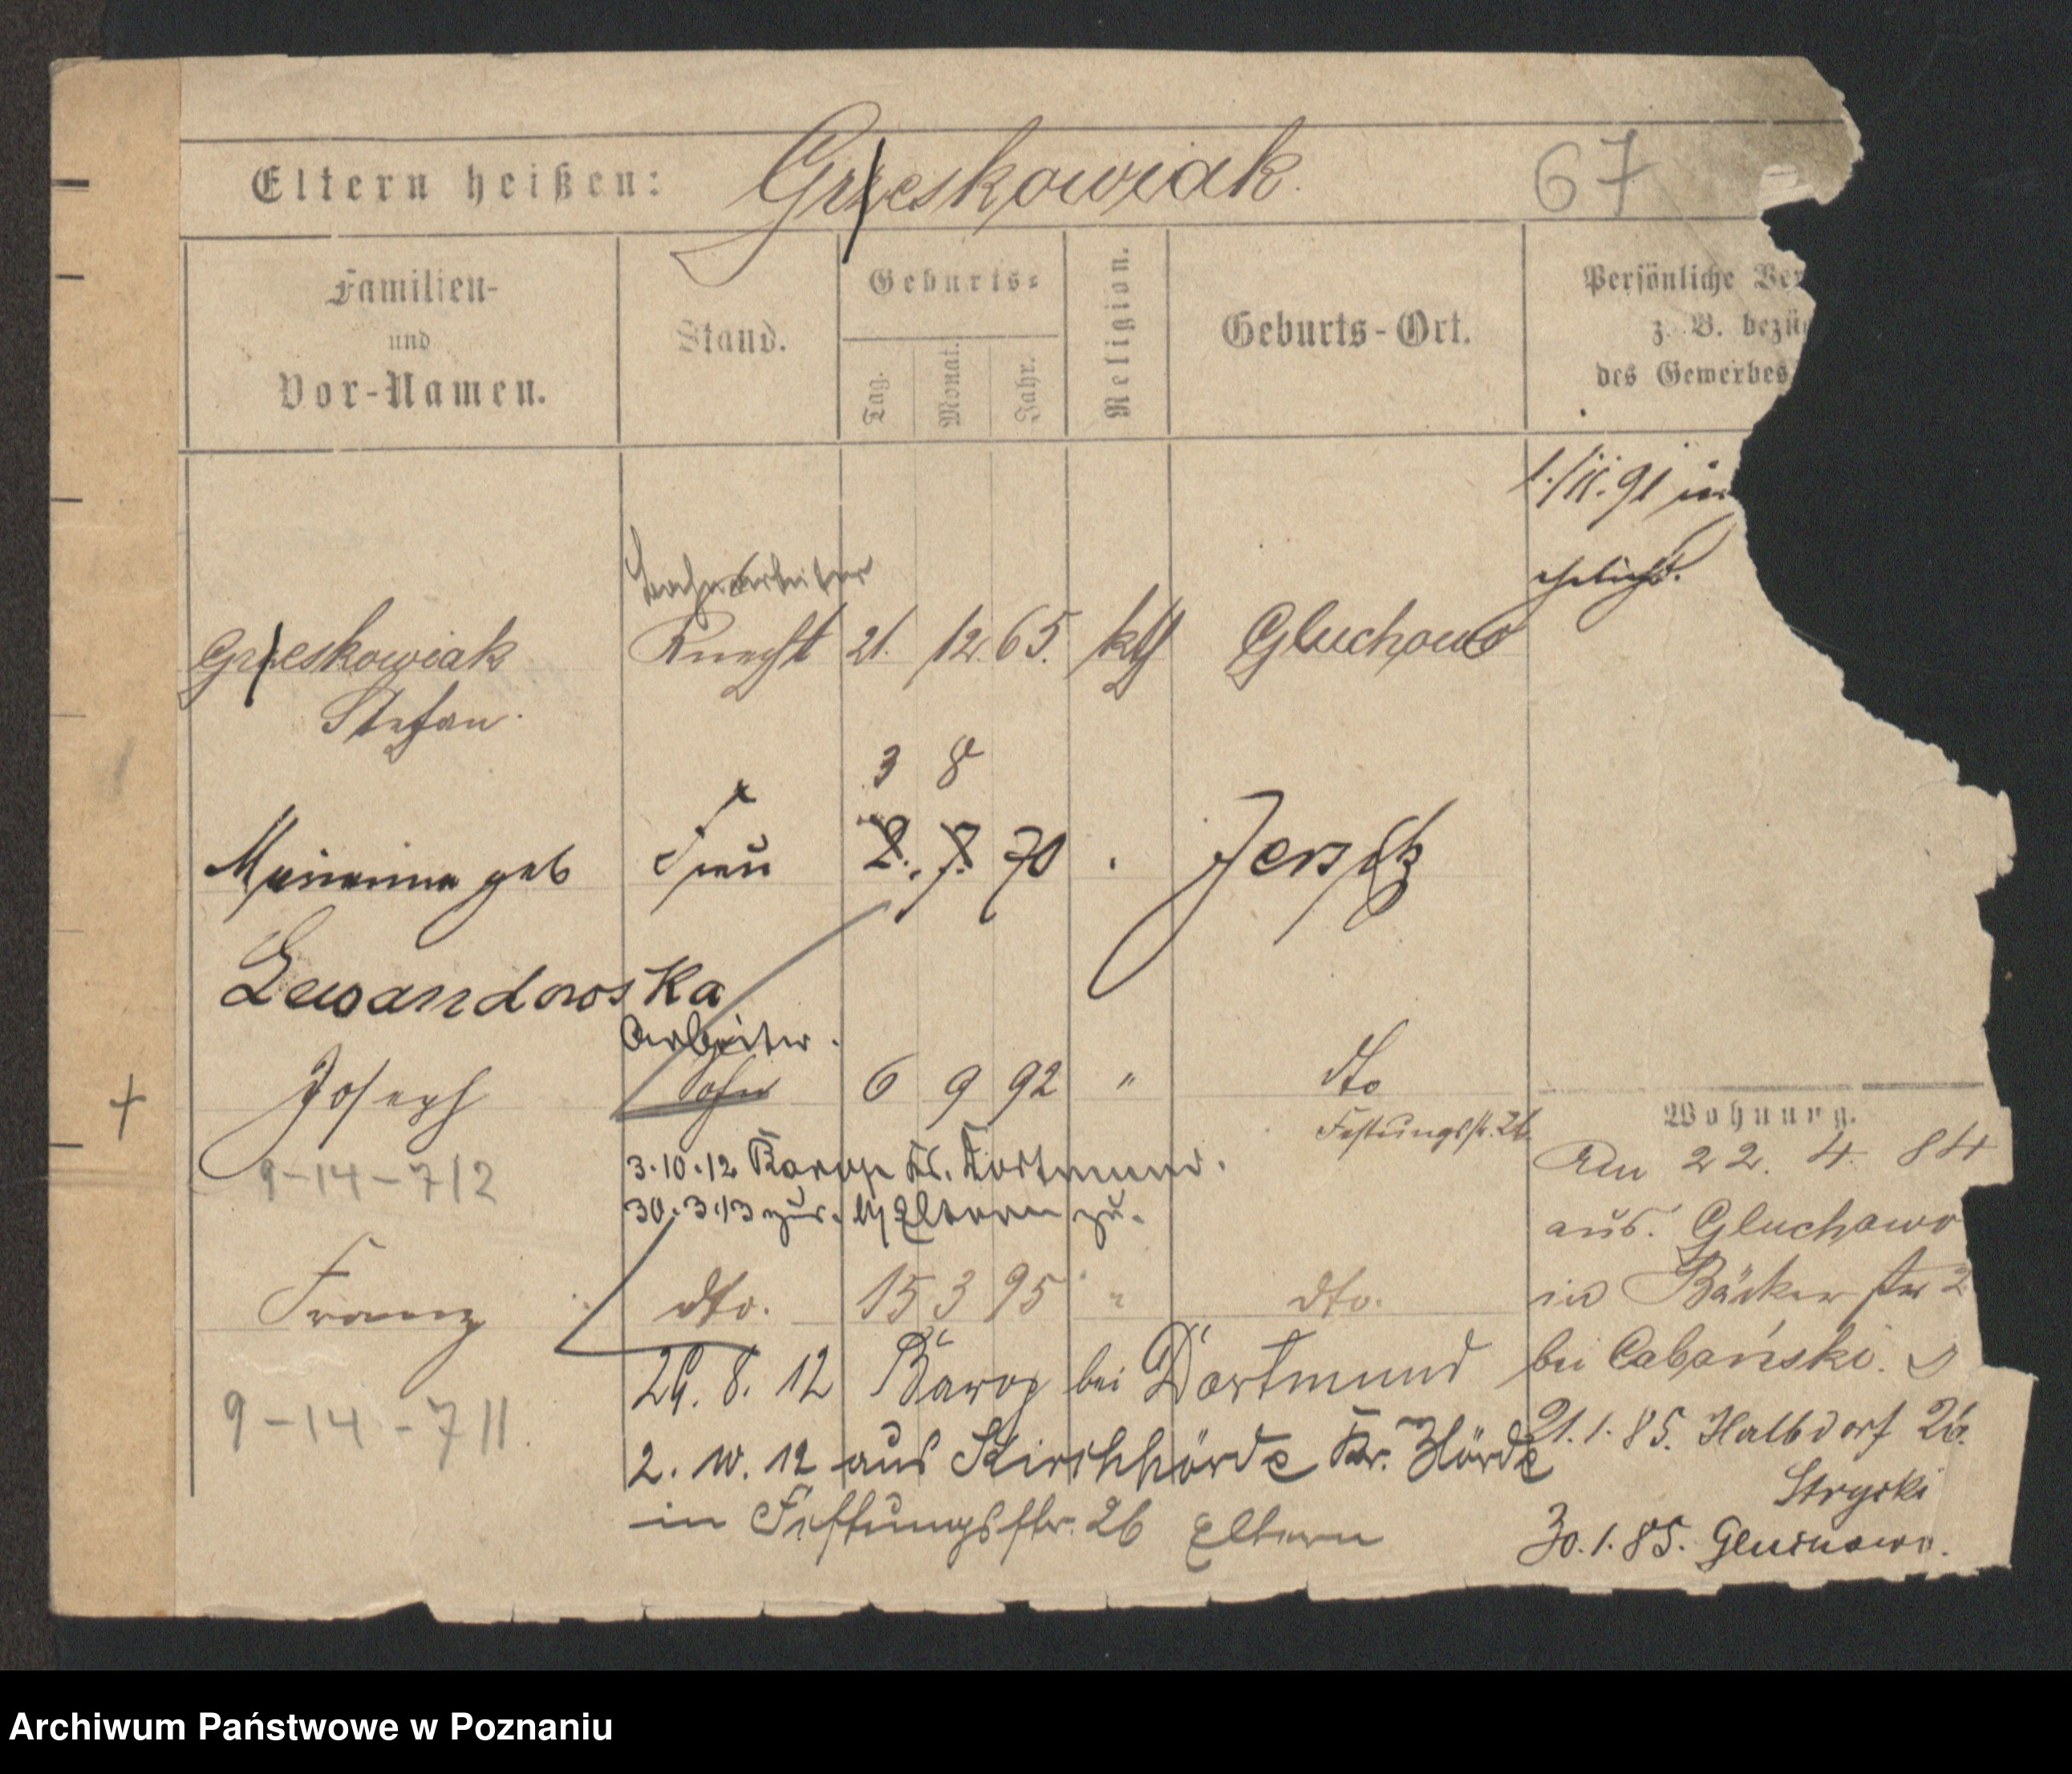 Eltern heißen: Grzeskowiak. 67
Familien-
und
Vor-Namen.
Stand.
Geburts-
Tag. Monat. Jahr.
Religion.
Geburts-Ort.
Persönliche Ver
z. B. bezüg
des Gewerbes
1./11. 91 in
ehelicht.
Bahnarbeiter
Grzeskowiak Knecht 21. 12. 65. kth Gluchowo
Stefan.
3 8
Marianna geb Frau 2. 7. 70 Jersitz
Lewandowska
Arbeiter.
Joseph Sohn 6 9 92 " dto
Festungsstr. 26.
9-14-712
3.10.12 Barop Kr. Dortmund.
30.3.13 zur. Eltern zu.
Franz dto. 15 3 95 " dto.
29. 8. 12 Barop bei Dortmund
9-14-711.
2. 10. 12 aus Kirchhörde Kr. Hörde
in Festungsstr. 26 Eltern
Wohnung.
Am 22. 4. 84
aus. Gluchowo
in Bäckerstr 2
bei Cabański.
21.1.85. Halbdorf 26.
Stryski
30.1.85. Gluchowo.
Archiwum Państwowe w Poznaniu